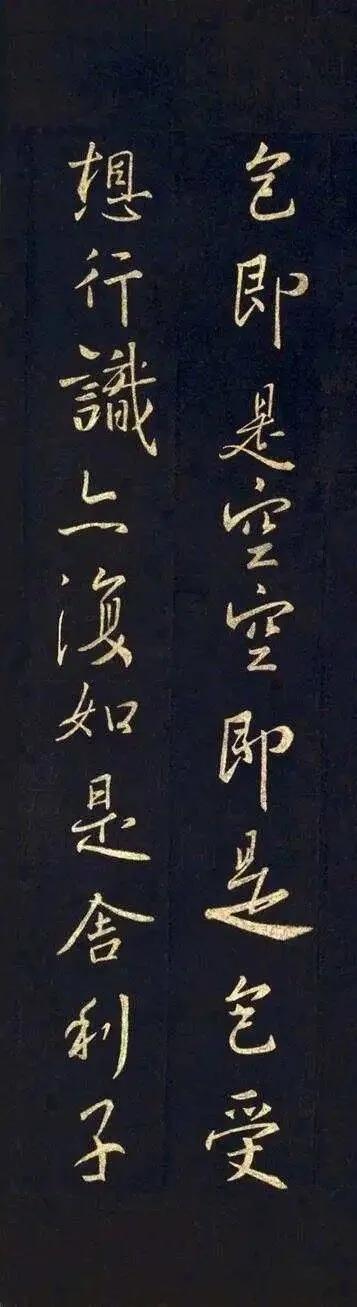 色即是空空即是色受
想行識亦復如是舍利子